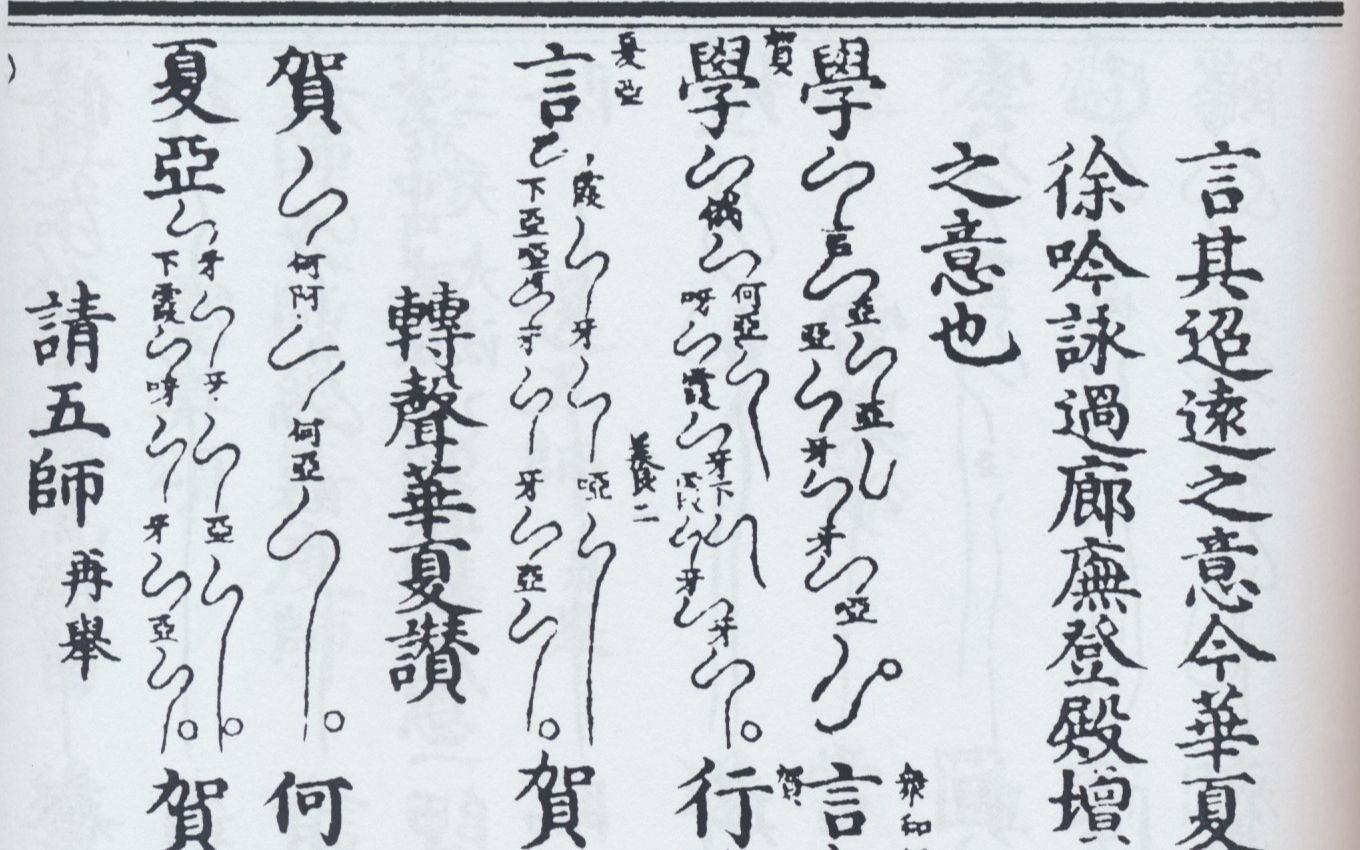 言其迢遠之意今華夏
徐吟詠過廊廡登殿壇
之意也
學 言 亞 亞 亞 牙 牙 啞 言
賀
學 何亞 呀 霞 牙下 牙 牙 行
賀
夏亞
言 霞 牙 啞 下亞啞 牙 牙 亞 賀
轉聲華夏讚
賀 何阿 何亞 何
夏亞 牙 牙 亞 下霞 呀 牙 亞 賀
請五師 再舉